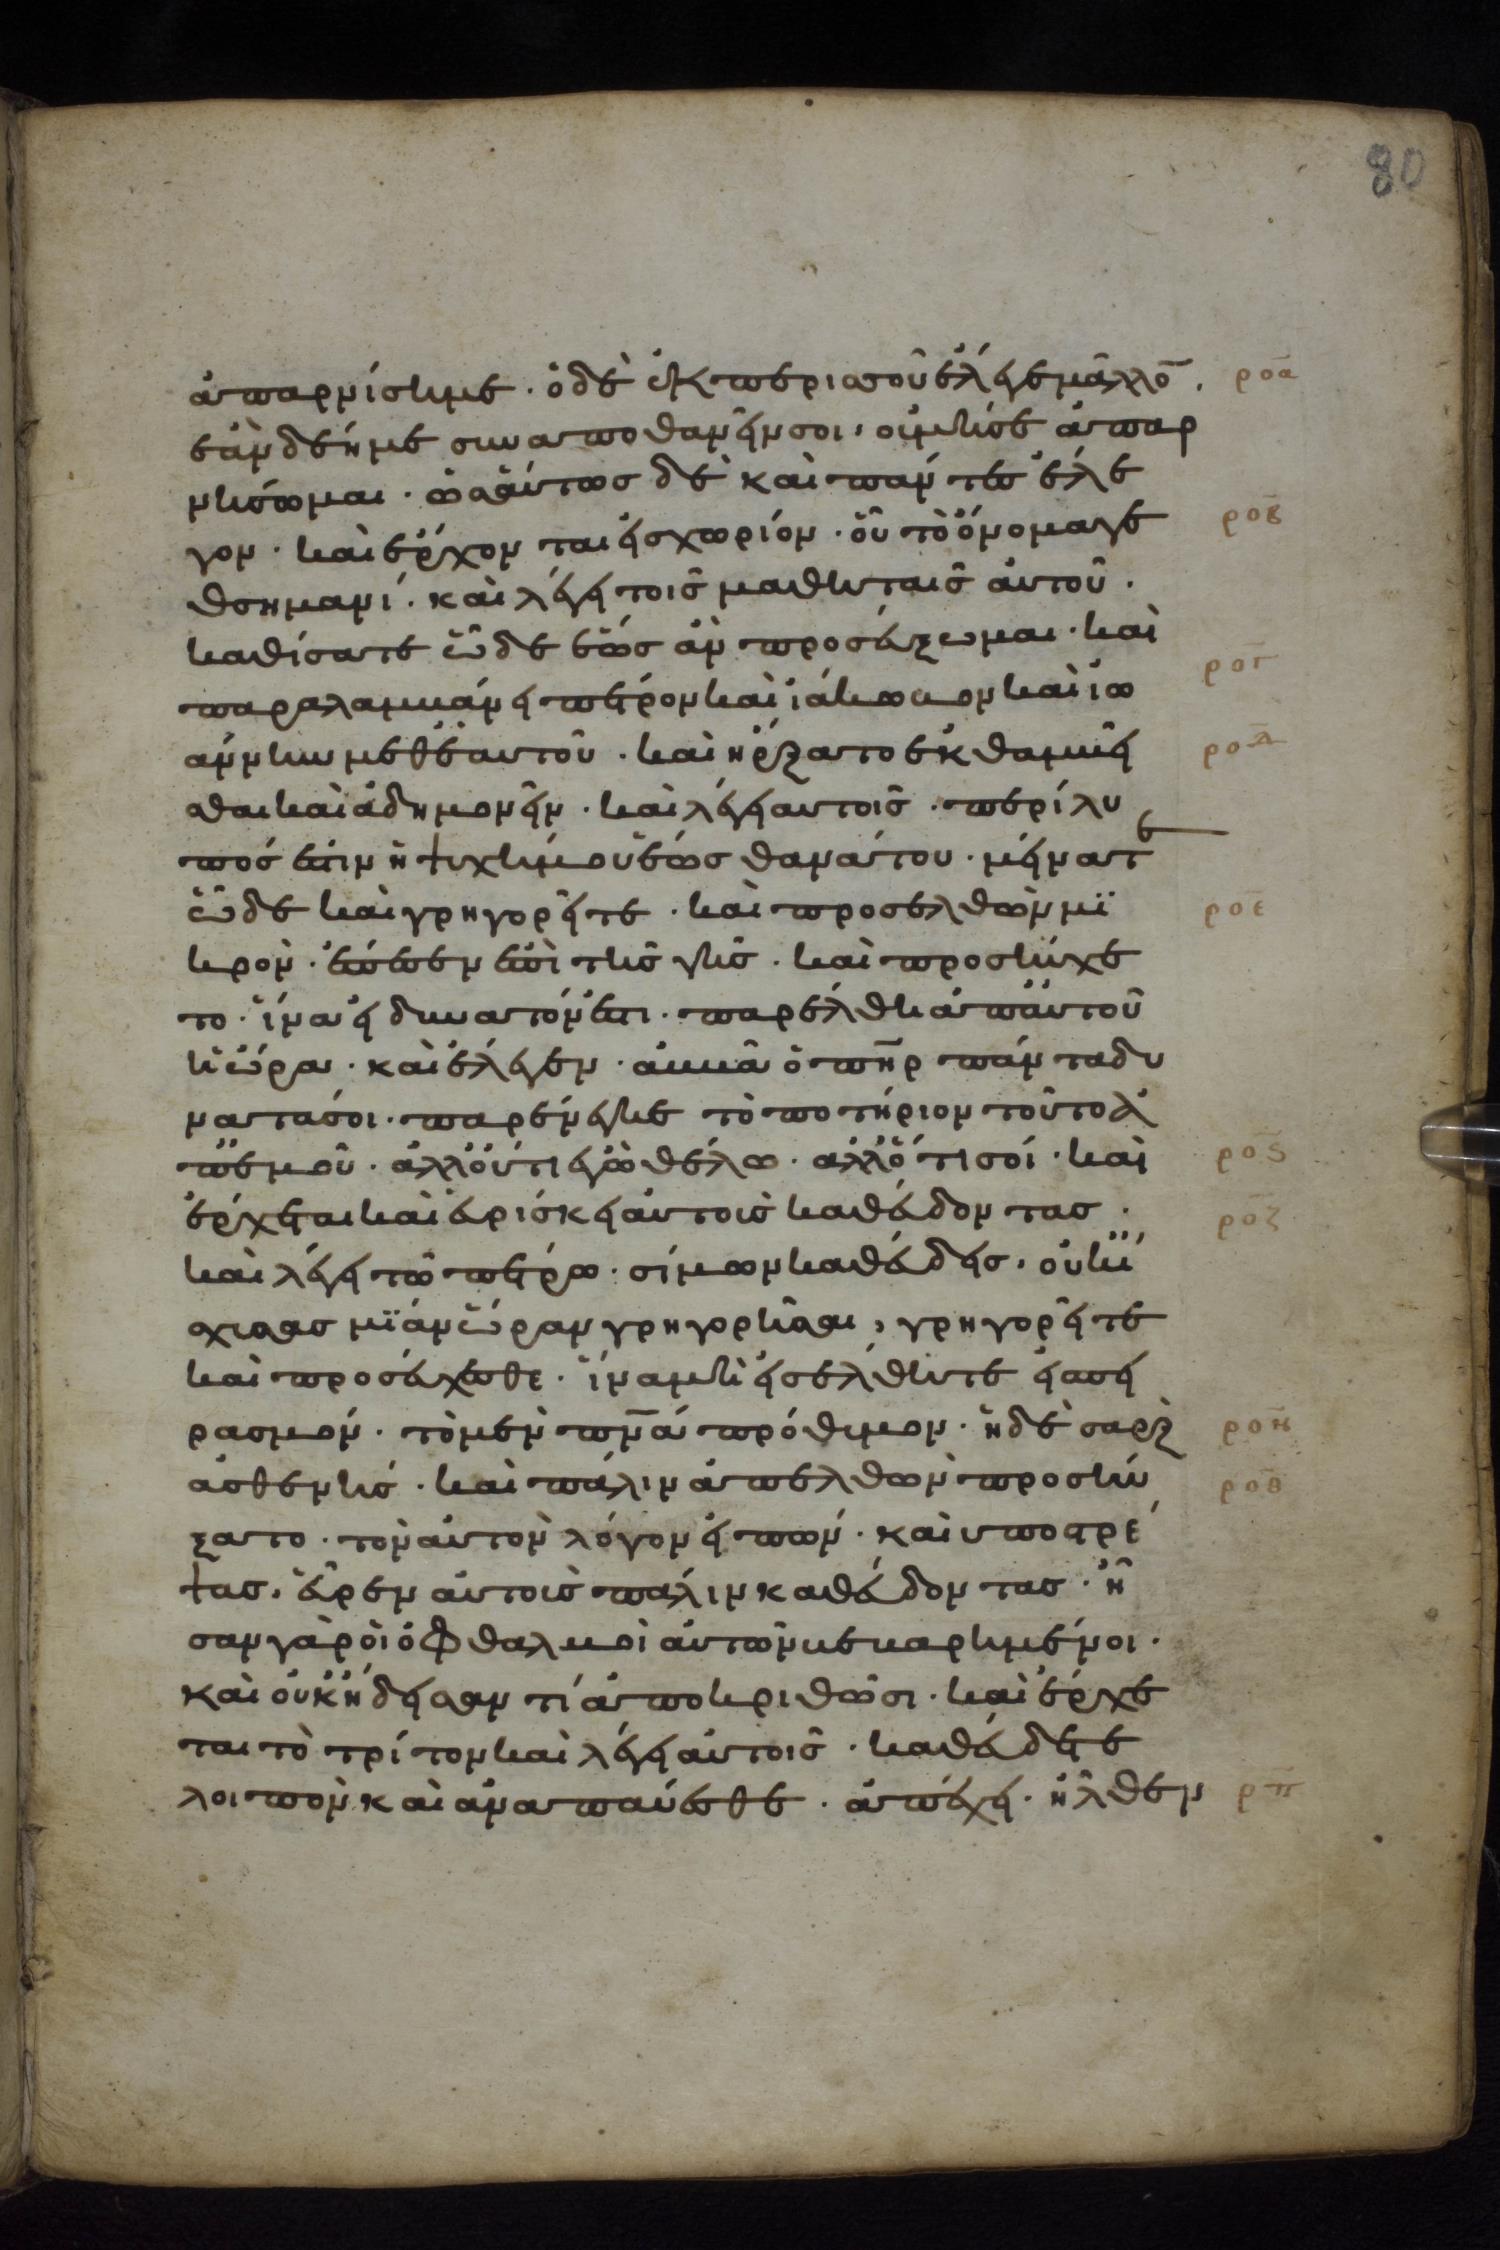 80
ἀπαρνήσημε · ὁ δὲ ἐκπερισσοῦ ἔλεγε μᾶλλο̅ · ρο̅α
ἐὰν δεήμε συναποθανεῖν σοι, οὐμήσε ἀπαρ
νήσωμαι · ὡσαύτως δὲ καὶ πάντες ἔλε
γον · καὶ ἔρχονται εἰσχωρίον · οὗ τὸ ὄνομα γε ρο̅β
θσημανί · καὶ λέγει τοῖς μαθηταῖς αὐτοῦ ·
καθίσατε ὧδε ἕως ἂν προσεύξωμαι · καὶ ρο̅γ
παραλαμβάνει πέτρον καὶ ἰάκωβον καὶ ἰω
άννην μεθ ἑαυτοῦ · καὶ ἤρξατο ἐκθαμβεῖ ρο̅δ
σθαι καὶ ἀδημονεῖν · καὶ λέγει αυτοῖς · περίλυ
πός ἐστιν ἡ ψυχήμου ἕως θανάτου · μείνατε
ὧδε καὶ γρηγορεῖτε · καὶ προσελθὼν μϊ ρο̅ε
κρὸν · ἔπεσεν ἐπὶ τῆς γῆς · καὶ προσηύχε
το · ἵνα εἰ δυνατόν ἐστι · παρέλθη ἀπ αὐτοῦ
ἡ ὥρα · καὶ ἔλεγεν · ἀββᾶ ὁ π̅η̅ρ πάντα δυ
νατά σοι · παρένεγκε τὸ ποτήριον τοῦτο ἀ
π ἐμοῦ · ἀλλ οὔ τι ἐγὼ θέλω · ἀλλ ὅ τι σοί · καὶ ρο̅ϛ
ἔρχεται καὶ εὑρίσκει αὐτοὺς καθεύδοντας · ρο̅ζ
καὶ λέγει τῶ πέτρω · σίμων καθεύδεις, οὐκ ἴ
σχυσας μϊὰν ὥραν γρηγορῆσαι, γρηγορεῖτε
καὶ προσεύχεσθε · ἵνα μὴ εἰσέλθητε εἰς πει
ρασμόν · τὸ μὲν π̅ν̅ᾶ πρόθυμον · ἡ δὲ σαρξ ρο̅η
ἀσθενής · καὶ πάλιν ἀπελθὼν προσηύ ρο̅θ
ξατο · τὸν αὐτὸν λόγον εἰπών · καὶ υποστρέ
ψας, εὗρεν αὐτοὺς πάλιν καθεύδοντας · ἦ
σαν γὰρ ὁι ὀφθαλμοὶ αὐτῶν βεβαρημένοι ·
καὶ οὐκ ἤδεισαν τί ἀποκριθῶσι · καὶ ἔρχε
ται τὸ τρίτον καὶ λέγει αὐτοῖς · καθεύδετε
λοιπὸν καὶ ἀναπαύεσθε · ἀπέχει · ἦλθεν ρ̅π